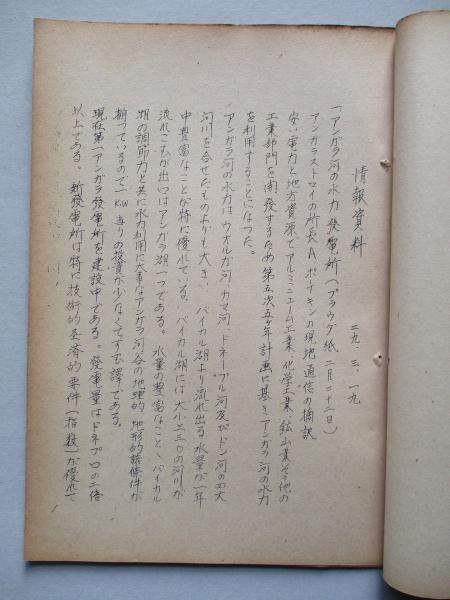 情報資料
二九、三、一九
一、アンガラ河の水力發電所(プラウダ紙二月二十二日)
アンガラストロイの所長A、ボチキンの現地通信の摘訳
安い電力と地方資源でアルミニューム工業、化学工業、鉱山業その他の
工業部門を開発するため第五次五ヶ年計画に基きアンガラ河の水力
を利用することになつた。
アンガラ河の水力はウオルガ河、カマ河、ドネープル河及びドン河の四大
河川を合せたものよりも大きい、バイカル湖より流れ出る水量が一年
中豊富なことが特に優れている。バイカル湖には大小三三〇の河川が
流れこむが出口はアンガラ河一つである。水量の豊富なことゝバイカル
湖の調節力と共に水力利用に大事なアンガラ河谷の地理的、地形的諸條件が
揃つているので一KW当りの投資が少なくてすむ譯である。
現在第一アンガラ發電所を建設中である。發電量はドネプロの二倍
以上である。新發電所は特に技術的経済的要件(指数)が優れて